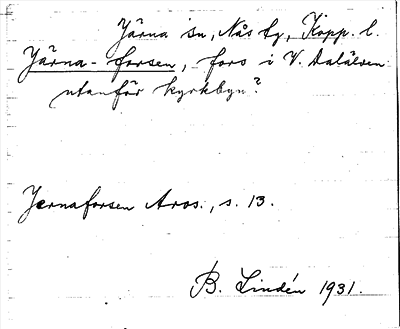 Järna sn, Nås tg, Kopp. l.
Järna-forsen, fors i V. Dalälven
utanför kyrkbyn?
Jærnaforsen Aros., s. 13.
B. Lindén 1931.